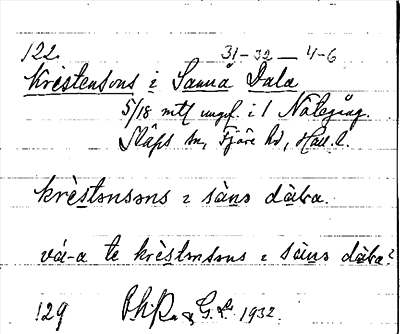 122. 31-32 — 4-6
Kristensons i Sanna Dala
5/18 mtl ungf. i 1 Nötegång.
Släps sn, Fjäre hd, Hall. l.
krèstənsəns ɪ sàna dàla.
vá-a te krèstənsəns ɪ sàna dàla?
129 1932.